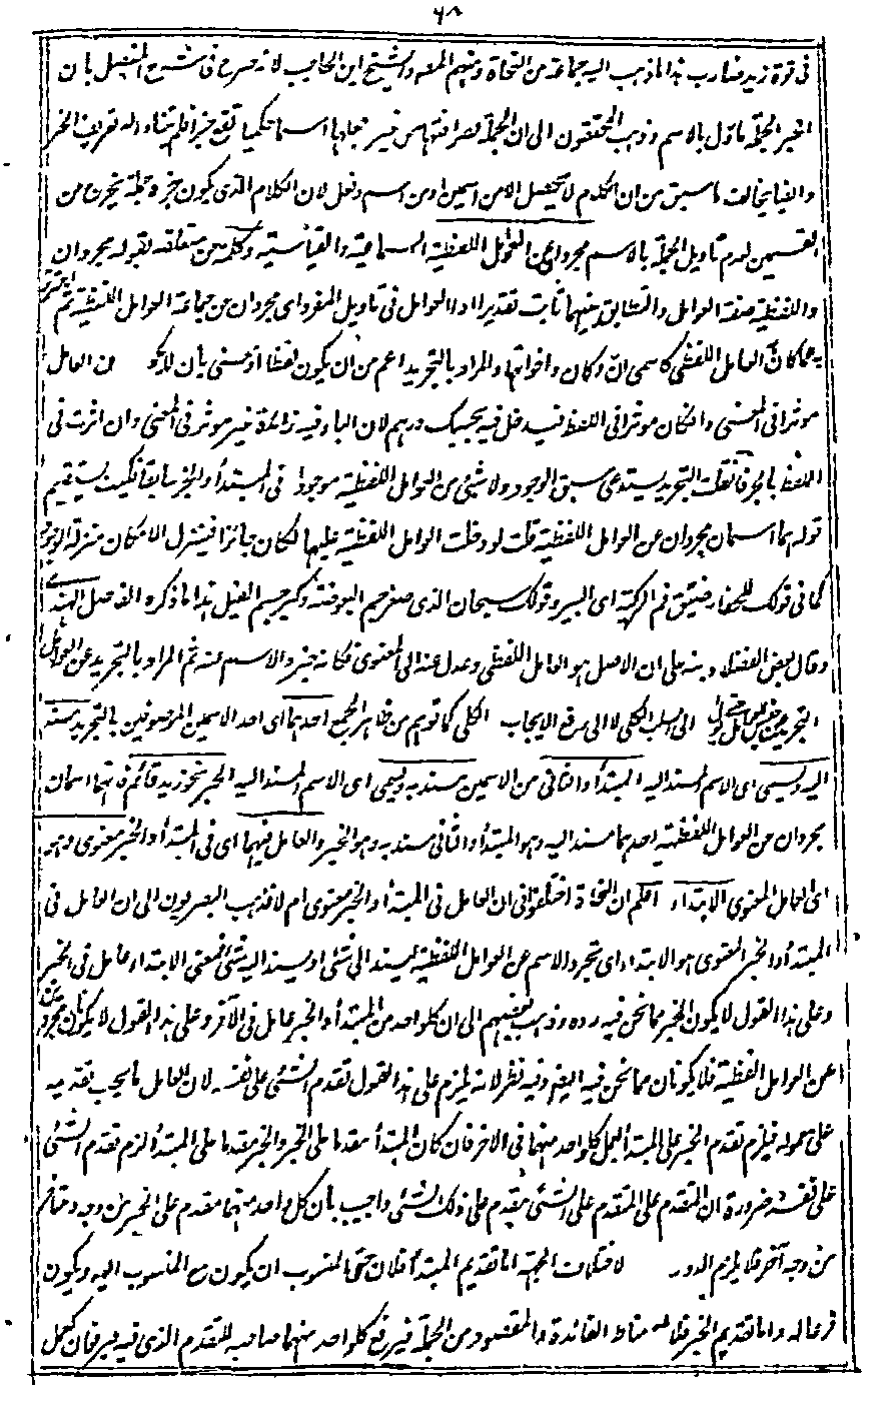 ٦٨
فى قوة زيد ضارب هذا المذهب اليه جماعة من النحاة ومنهم المصـ والشيخ ابن الحاجب لانه صرح فى شرح المفصل بان
الخبر الجملة ماول بالاسم وذهب المحققون الى ان الجملة بصرافتها من غير جعلها اسما حكميا تقع خبرا فلم يتناوله تعريف الخبر
وايضا يخالف ما سبق من ان الكلام لا يحصل الا من اسمين او من اسم وفعل لان الكلام الذى يكون خبره جملة يخرج من
القسمين لعدم تاويل الجملة بالاسم مجردان عن العوامل اللفظية السماعية والقياسية وكلمة عن متعلقة بقوله مجردان
واللفظية صفة العوامل والتطابق بينهما ثابت تقديرا اذ العوامل فى تاويل المفرد اى مجردان عن جماعة العوامل اللفظية ثم
به مما كان العامل اللفظى كاسمى ان وكان واخواتها والمراد بالتجريد اعم من ان يكون لفظا او معنى بان لا يكون العامل
موثرا فى المعنى وان كان موثرا فى اللفظ فيدخل فيه بحسبك درهم لان الباء فيه زائدة غير موثر فى المعنى وان اثرت فى
اللفظ بالجر فان قلت التجريد يستدعى سبق الوجود ولا شئ من العوامل اللفظية موجودا فى المبتدأ والخبر سابقا فكيف يستقيم
قوله هما اسمان مجردان عن العوامل اللفظية قلت لو دخلت العوامل اللفظية عليها لكان جائزا فينزل الامكان منزلة الوجود
كما فى قولك للحفار ضيق فم الركية اى البير وقولك سبحان الذى صغر جسم البعوضة وكبر جسم الفيل هذا ما ذكره الفاضل الهندى
وقال بعض الفضلاء وبنه على ان الاصل هو العامل اللفظى وعدل عنه الى المعنوى فكانه خبر والاسم عنه ثم المراد بالتجريد عن العوامل
التجريد الى السلب الكلى لا الى رفع الايجاب الكلى كما توهم من ظاهر الجمع احدهما اى احد الاسمين الموصوفين بالتجريد مسند
اليه ويسمى اى الاسم المسند اليه المبتدأ والثانى من الاسمين مسند به ويسمى اى الاسم المسند اليه الخبر نحو زيد قائم فانهما اسمان
مجردان عن العوامل اللفظية احدهما مسند اليه وهو المبتدأ والثانى مسند به وهو الخبر والعامل فيهما اى فى المبتدأ والخبر معنوى وهو
اى العامل المعنوى الابتداء اعلم ان النحاة اختلفوا فى ان العامل فى المبتدأ والخبر معنوى ام لا فذهب البصريون الى ان العامل فى
المبتدأ والخبر المعنوى هو الابتداء اى تجرد الاسم عن العوامل اللفظية ليسند الى شئ او يسند اليه شئ فمعنى الابتداء عامل فى الخبر
وعلى هذا القول لا يكون الخبر مما نحن فيه رده وذهب بعضهم الى ان كل واحد من المبتدأ والخبر عامل فى الآخر وعلى هذا القول لا يكونان مجردين
عن العوامل اللفظية فلا يكونان مما نحن فيه ايضا وفيه نظر لانه يلزم على هذا القول تقدم الشئ على نفسه لان العامل ما يجب تقديمه
على معموله فيلزم تقدم الخبر على المبتدأ لعمل كل واحد منهما فى الآخر فان كان المبتدأ مقدما على الخبر والخبر مقدما على المبتدأ لزم تقدم الشئ
على نفسه ضرورة ان المتقدم على المتقدم على الشئ مقدم على ذلك الشئ واجيب بان كل واحد منهما مقدم على الخبر من وجه ومتأخر
من وجه آخر فلا يلزم الدور لاختلاف الجهة اما تقديم المبتدأ فلان حق المنسوب ان يكون مع المنسوب اليه ويكون
فرعا له واما تقديم الخبر فلانه مناط الفائدة والمقصود من الجملة فيرفع كل واحد منهما صاحبه للمتقدم الذى فيه فيرفعان كعمل